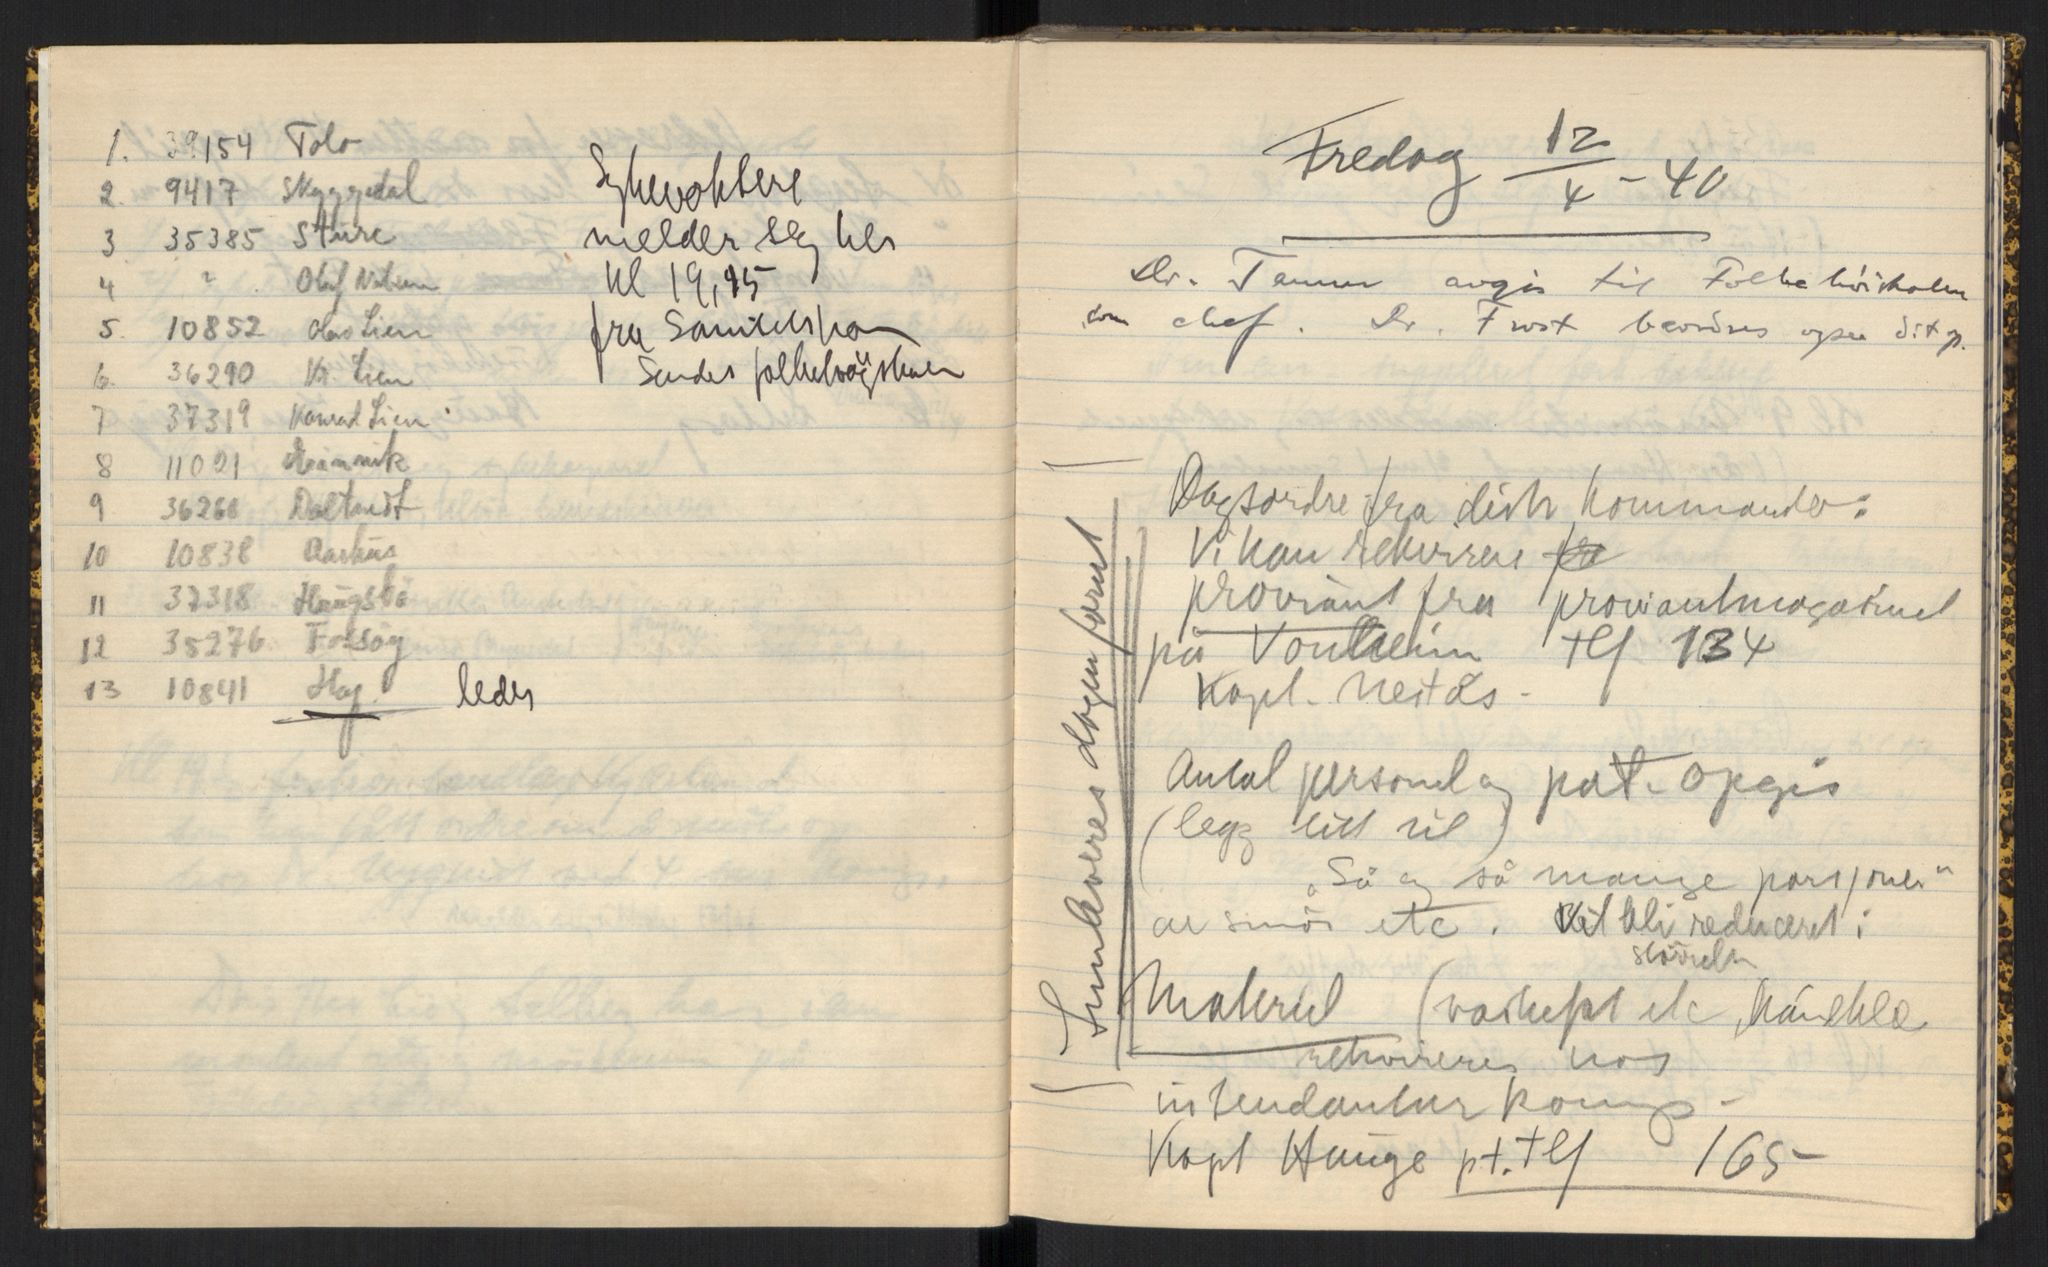 1. 39154 Tolo
2. 9417 Skyggedal
3 35385 Sture
4 " Olaf
5. 10852 Lien
6. 36290 Kr. Lien
7 37319 Konrad Lien
8 11091
9 36268
10 10838 Aarhus
11 37318 Haugsbö
12 35276
13 10841 Haj leder
Sykevoktere
melder seg her
Kl 19,15
fra Sanitetskom
Sendes folkehøyskolen
Fredag 12/4 - 40
Dr. avgis til Folkehöiskolen
som chef. Dr. Frost beordres ogsaa dit op.
Dagsordre fra distr kommando:
Vi kan rekvirere
proviant fra proviantmagasinet
på Vonheim tlf 134
Kapt. Nestås.
Antal personel og pat. opgis
(legg litt til)
„Så og så mange porsjoner"
av smör etc. Vil bli reduceret i
störrelse
Materiel (vaskefat etc, håndklæ
rekvireres hos
intendantur komp.
Kapt Hauge pt. tlf 165-
Innleveres dagen forut